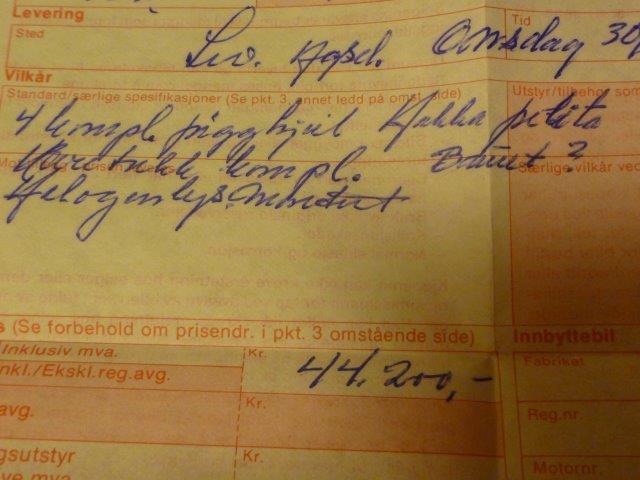 Levering
Sted
Tid
Lev. Onsdag 30
Vilkår
Standard/særlige spesifikasjoner (Se pkt. 3, annet ledd på omst. side)
Utstyr/tilbehør som
4 kompl. pigghjul Hakka
kompl.
Særlige vilkår ved
Halogenlys. montert
(Se forbehold om prisendr. i pkt. 3 omstående side)
Innbyttebil
Inklusiv mva.
Kr.
44.200,-
Fabrikat
nkl./Ekskl.reg.avg.
avg.
Kr.
Reg.nr.
gsutstyr
Kr.
Motornr.
ve mva.